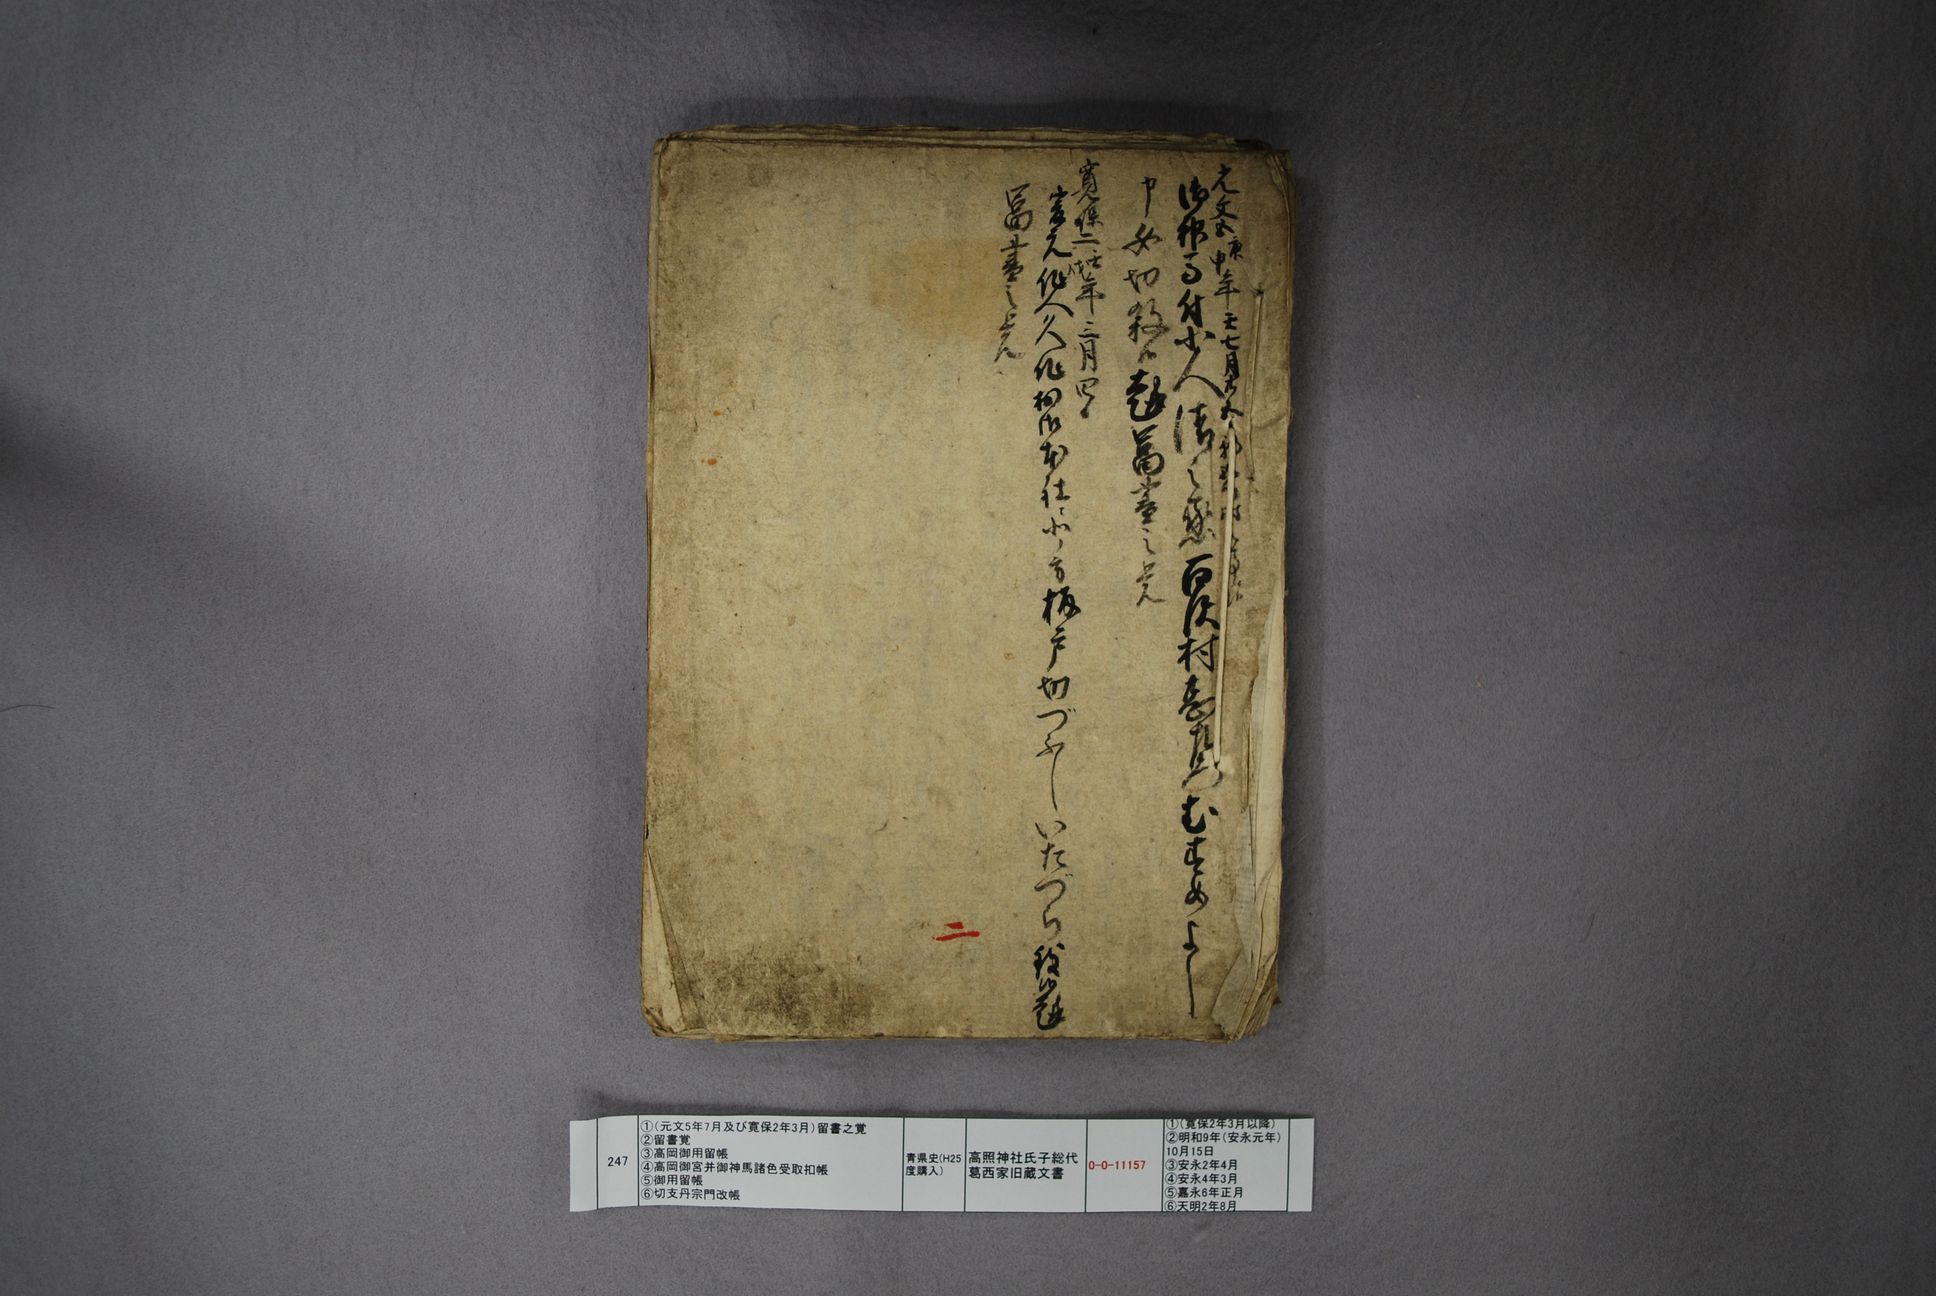 元文五庚申年壬七月廿五
御神馬付小人清之丞百沢村
むすめよし
申女切殺候趣留書之覚
寛保二壬戌年三月四日
作人久作
板戸切づふしいたづら致候趣
留書之覚
二
247
①(元文5年7月及び寛保2年3月)留書之覚
②留書覚
③高岡御用留帳
④高岡御宮并御神馬諸色受取扣帳
⑤御用留帳
⑥切支丹宗門改帳
青県史(H25
度購入)
高照神社氏子総代
葛西家旧蔵文書
0-0-11157
①(寛保2年3月以降)
②明和9年(安永元年)
10月15日
③安永2年4月
④安永4年3月
⑤嘉永6年正月
⑥天明2年8月